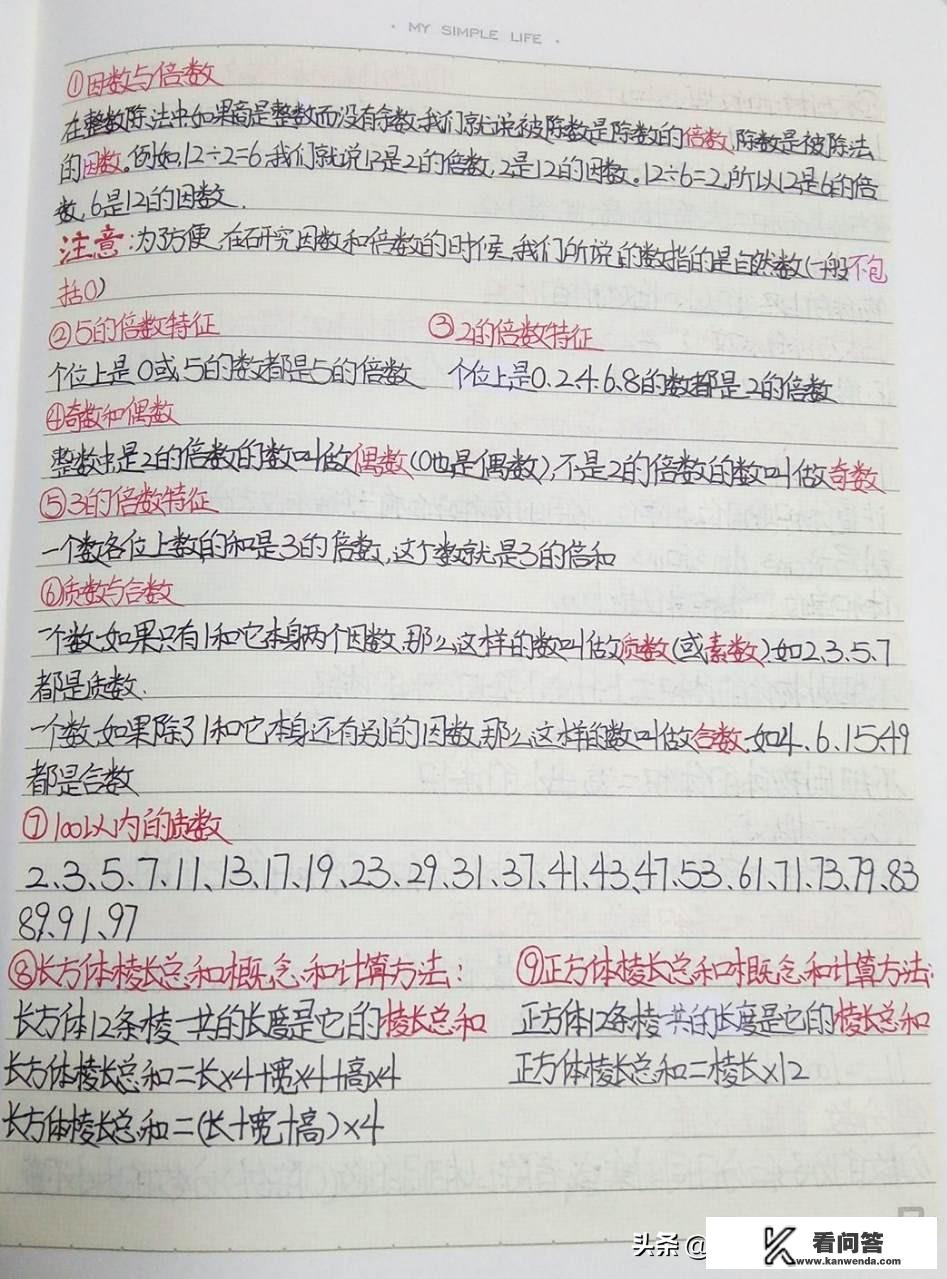 · MY SIMPLE LIFE ·
①因数与倍数
在整数除法中如果商是整数而没有余数,我们就说被除数是除数的倍数,除数是被除法
的因数。例如,12÷2=6,我们就说12是2的倍数,2是12的因数。12÷6=2,所以12是6的倍
数,6是12的因数.
注意:为了方便,在研究因数和倍数的时候,我们所说的数指的是自然数(一般不包
括0)
②5的倍数特征 ③2的倍数特征
个位上是0或5的数都是5的倍数 个位上是0.2.4.6.8的数都是2的倍数
④奇数和偶数
整数中是2的倍数的数叫做偶数(0也是偶数),不是2的倍数的数叫做奇数
⑤3的倍数特征
一个数各位上数的和是3的倍数,这个数就是3的倍和
⑥质数与合数
一个数,如果只有1和它本身两个因数,那么这样的数叫做质数(或素数).如2.3.5.7
都是质数.
一个数,如果除了1和它本身还有别的因数,那么这样的数叫做合数,如4、6、15、49
都是合数
⑦100以内的质数
2、3、5、7、11、13、17、19、23、29、31、37、41、43、47、53、61、71、73、79、83
89、91、97
⑧长方体棱长总和概念和计算方法: ⑨正方体棱长总和概念和计算方法:
长方体12条棱一共的长度是它的棱长总和 正方体12条棱一共的长度是它的棱长总和
长方体棱长总和=长×4+宽×4+高×4 正方体棱长总和=棱长×12
长方体棱长总和=(长+宽+高)×4
头条 @
K 看问答
www.kanwenda.com